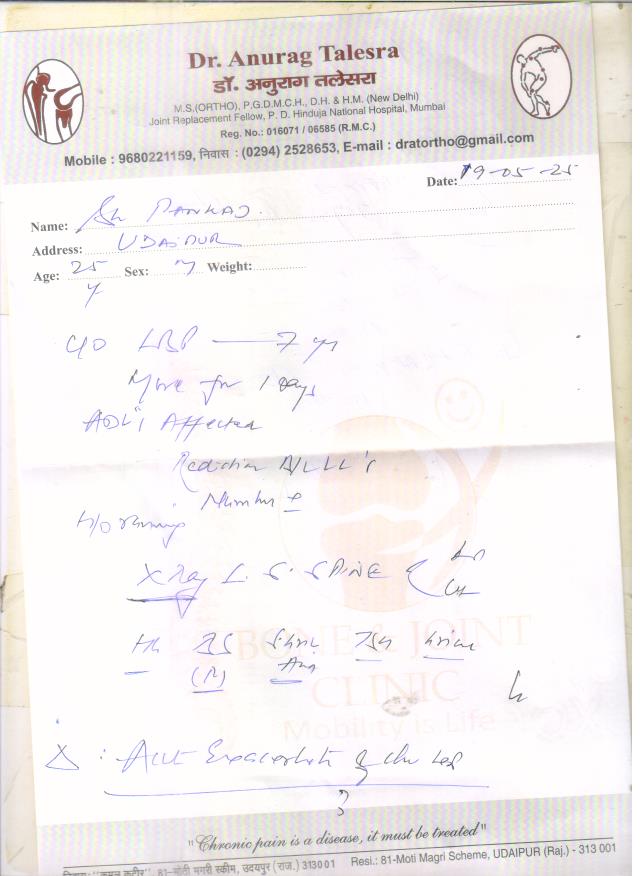 Dr. Anurag Talesra
डॉ. अनुराग तलेसरा
M.S.(ORTHO), P.G.D.M.C.H., D.H. & H.M. (New Delhi)
Joint Replacement Fellow, P. D. Hinduja National Hospital, Mumbai
Reg. No.: 016071 / 06585 (R.M.C.)
Mobile : 9680221159, निवास : (0294) 2528653, E-mail : dratortho@gmail.com
Date: 19-05-25
Name: Sh PANKAJ
Address: UDAIPUR
Age: 25 y Sex: M Weight:
C/O LBP — 7 yr
More for 1 Days
ADL's Affected
Radiation B/L LL's
H/O
X Ray L. S. SPINE AP
BONE & JOINT
CLINIC
Mobility is Life
Δ :
"Chronic pain is a disease, it must be treated"
81-मोती मगरी स्कीम, उदयपुर (राज.) 313001 Resi.: 81-Moti Magri Scheme, UDAIPUR (Raj.) - 313 001